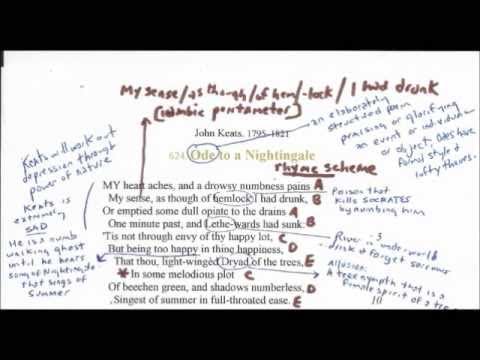 My sense/as though/of hem/-lock/I had drunk
(iambic pentameter)
an elaborately
structured poem
praising or glorifying
an event or individual
or object, Odes have
formal style &
lofty themes.
John Keats. 1795–1821
624. Ode to a Nightingale
rhyme scheme
Keats will work out
depression through
power of nature
Keats is
extremely
SAD
He is a numb
walking ghost
until he hears
song of Nightingale
that sings of
summer
MY heart aches, and a drowsy numbness pains A
My sense, as though of hemlock I had drunk, B
Or emptied some dull opiate to the drains A
One minute past, and Lethe-wards had sunk: B
'Tis not through envy of thy happy lot, C
But being too happy in thine happiness, D
That thou, light-wingèd Dryad of the trees, E
*In some melodious plot C
Of beechen green, and shadows numberless, D
Singest of summer in full-throated ease. E
Poison that
kills SOCRATES
by numbing him
River in underworld
drink & forget sorrows
Allusion:
A tree nymph that is a
female spirit of a tree
10